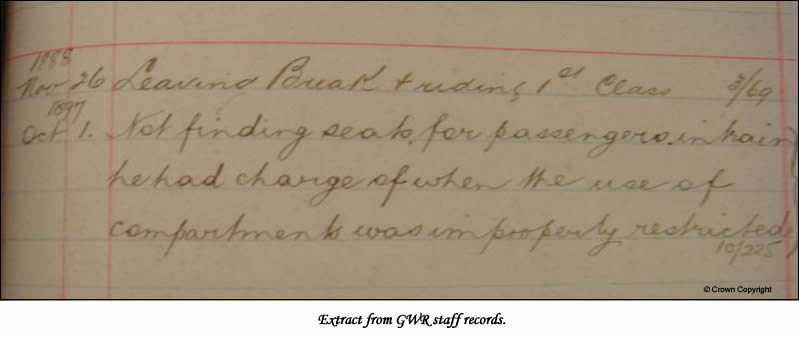 1888
Nov 26 Leaving Break & riding 1st Class 3/69
1897
Oct 1. Not finding seats for passengers in train
he had charge of when the use of
compartments was improperly restricted
10/225
© Crown Copyright
Extract from GWR staff records.